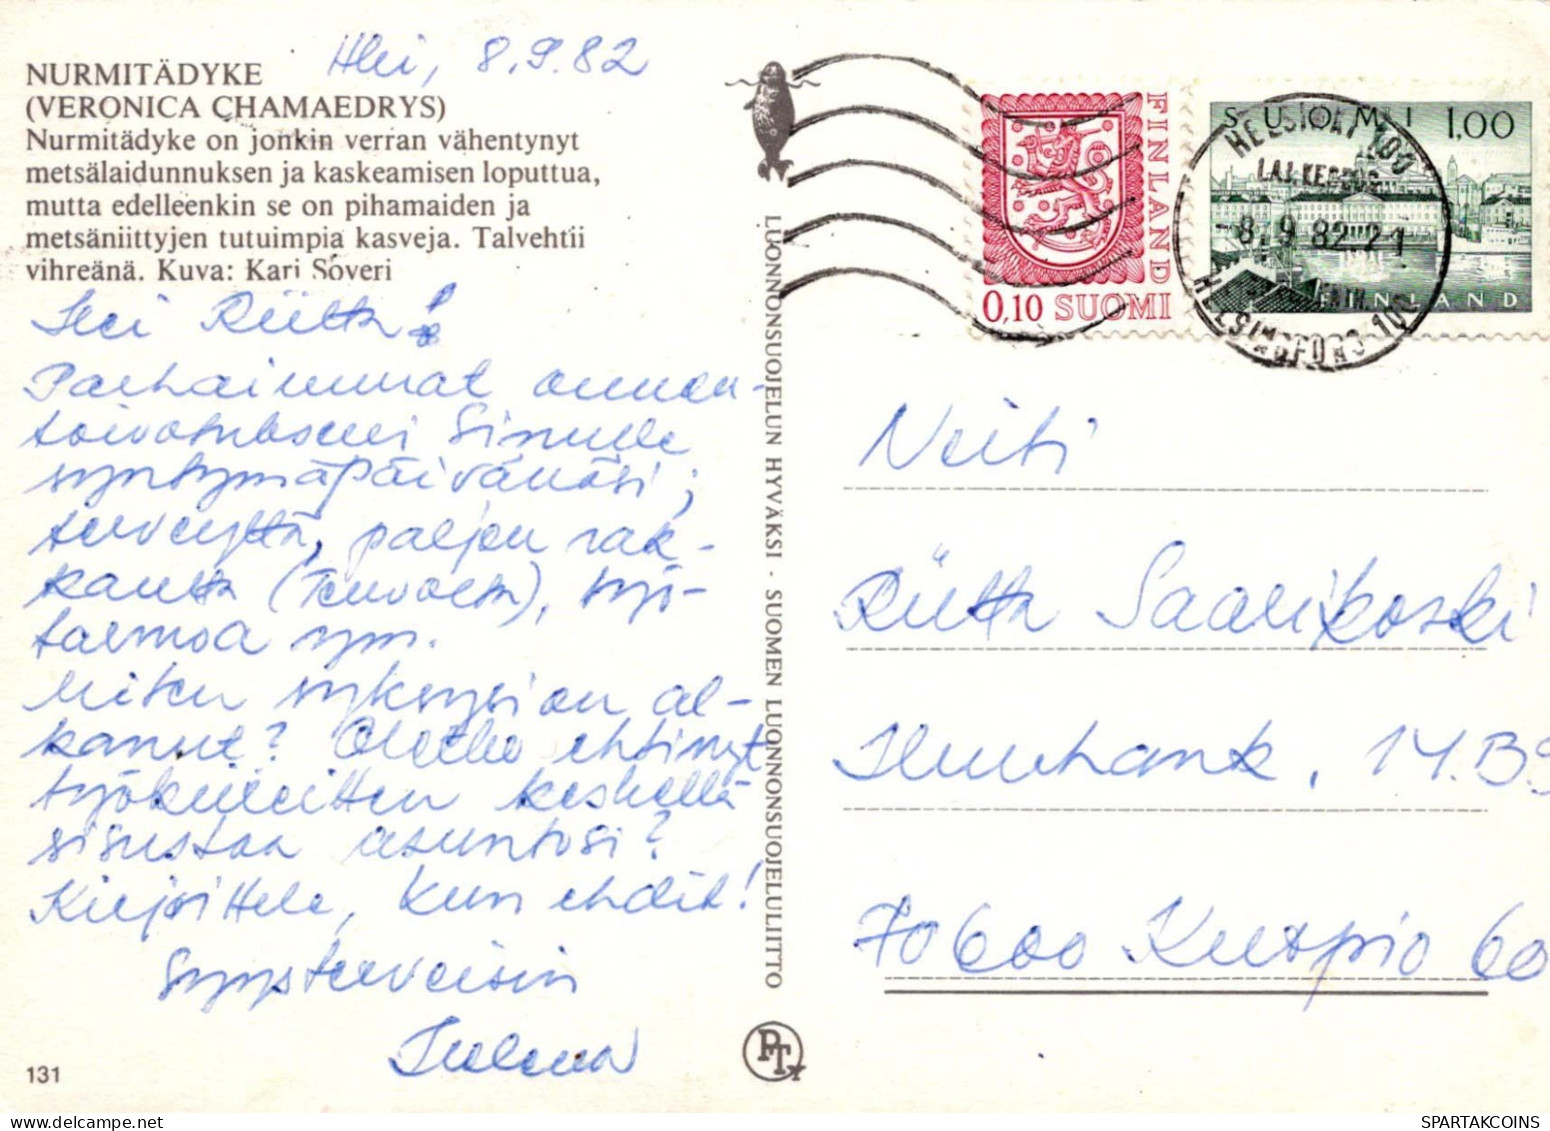 Hki, 8.9.82
NURMITÄDYKE
(VERONICA CHAMAEDRYS)
Nurmitädyke on jonkin verran vähentynyt
metsälaidunnuksen ja kaskeamisen loputtua,
mutta edelleenkin se on pihamaiden ja
metsäniittyjen tutuimpia kasveja. Talvehtii
vihreänä. Kuva: Kari Soveri
Hei Riitta!
Parhaimmat onnen-
toivotukseni Sinulle
syntymäpäivänäsi;
terveyttä, paljon rak-
kautta (Teuvolta), työ-
tarmoa ym.
Miten syksysi on al-
kanut? Oletko ehtinyt
työkiireitten keskellä
sisustaa asuntosi?
Kirjoittele, kun ehdit!
Syysterveisin
131
LUONNONSUOJELUN HYVÄKSI - SUOMEN LUONNONSUOJELULIITTO
PTT
FINLAND
0,10 SUOMI
SUOMI 1,00
FINLAND
HELSINKI 100
8.9.82.21
HELSINGFORS 100
Neiti
Riitta Saarikoski
14.B
70600 Kuopio 60
SPARTAKCOINS.COM